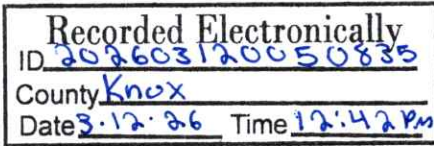 Recorded Electronically
ID 202603120050835
County Knox
Date 3.12.26 Time 12:42 PM